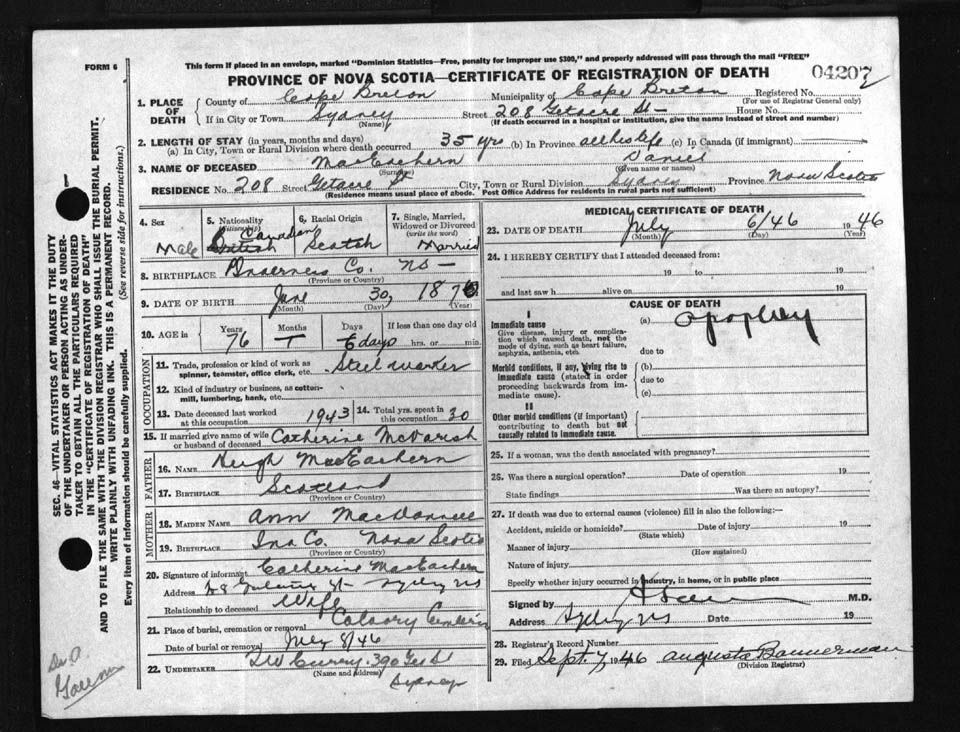 FORM 6
This form if placed in an envelope, marked "Dominion Statistics—Free, penalty for improper use $300," and properly addressed will pass through the mail "FREE"
PROVINCE OF NOVA SCOTIA—CERTIFICATE OF REGISTRATION OF DEATH
04207
1. PLACE OF DEATH
County of Cape Breton Municipality of Cape Breton Registered No.
(For use of Registrar General only)
If in City or Town Sydney Street 208 St— House No.
(Name) (If death occurred in a hospital or institution, give the name instead of street and number)
2. LENGTH OF STAY (in years, months and days)
(a) In City, Town or Rural Division where death occurred 35 yrs (b) In Province all his life (c) In Canada (if immigrant)
3. NAME OF DECEASED MacEachern Daniel
(Surname) (Given name or names)
RESIDENCE No. 208 Street St City, Town or Rural Division Sydney Province Nova Scotia
(Residence means usual place of abode. Post Office Address for residents in rural parts not sufficient)
4. Sex
Male
5. Nationality
(Citizenship)
Canadian
British
6. Racial Origin
Scotch
7. Single, Married, Widowed or Divorced
(write the word)
Married
8. BIRTHPLACE Inverness Co. NS—
(Province or Country)
9. DATE OF BIRTH June 30, 1870
(Month) (Day) (Year)
10. AGE in
Years Months Days If less than one day old
76 — 6 days hrs. or min.
OCCUPATION
11. Trade, profession or kind of work as spinner, teamster, office clerk, etc. Steel worker
12. Kind of industry or business, as cotton-mill, lumbering, bank, etc.
13. Date deceased last worked at this occupation 1943
14. Total yrs. spent in this occupation 30
15. If married give name of wife or husband of deceased Catherine McVarish
FATHER
16. NAME Hugh MacEachern
17. BIRTHPLACE Scotland
(Province or Country)
MOTHER
18. MAIDEN NAME Ann MacDonnell
19. BIRTHPLACE Inv Co. Nova Scotia
(Province or Country)
20. Signature of informant Catherine MacEachern
Address St— Sydney NS
Relationship to deceased Wife
21. Place of burial, cremation or removal Calvary Cemetery
Date of burial or removal July 8/46
22. UNDERTAKER T W Curry. 390 St
(Name and address)
Sydney
MEDICAL CERTIFICATE OF DEATH
23. DATE OF DEATH July 6/46 1946
(Month) (Day) (Year)
24. I HEREBY CERTIFY that I attended deceased from:
19 to 19
and last saw h alive on 19
CAUSE OF DEATH
I
Immediate cause
Give disease, injury or complication which caused death, not the mode of dying, such as heart failure, asphyxia, asthenia, etc.
(a) Apoplexy
due to
Morbid conditions, if any, giving rise to immediate cause (stated in order proceeding backwards from immediate cause).
(b)
due to
(c)
II
Other morbid conditions (if important) contributing to death but not causally related to immediate cause.
25. If a woman, was the death associated with pregnancy?
26. Was there a surgical operation? Date of operation 19
State findings Was there an autopsy?
27. If death was due to external causes (violence) fill in also the following:—
Accident, suicide or homicide? Date of injury 19
(State which)
Manner of injury
(How sustained)
Nature of injury
Specify whether injury occurred in industry, in home, or in public place
Signed by M.D.
Address Sydney NS Date 19
28. Registrar's Record Number
29. Filed Sept. 7, 1946 Augusta Bannerman
(Division Registrar)
SEC. 46—VITAL STATISTICS ACT MAKES IT THE DUTY
OF THE UNDERTAKER OR PERSON ACTING AS UNDER-
TAKER TO OBTAIN ALL THE PARTICULARS REQUIRED
IN THE "CERTIFICATE OF REGISTRATION OF DEATH"
AND TO FILE THE SAME WITH THE DIVISION REGISTRAR WHO SHALL ISSUE THE BURIAL PERMIT.
WRITE PLAINLY WITH UNFADING INK. THIS IS A PERMANENT RECORD.
Every item of information should be carefully supplied. (See reverse side for instructions.)